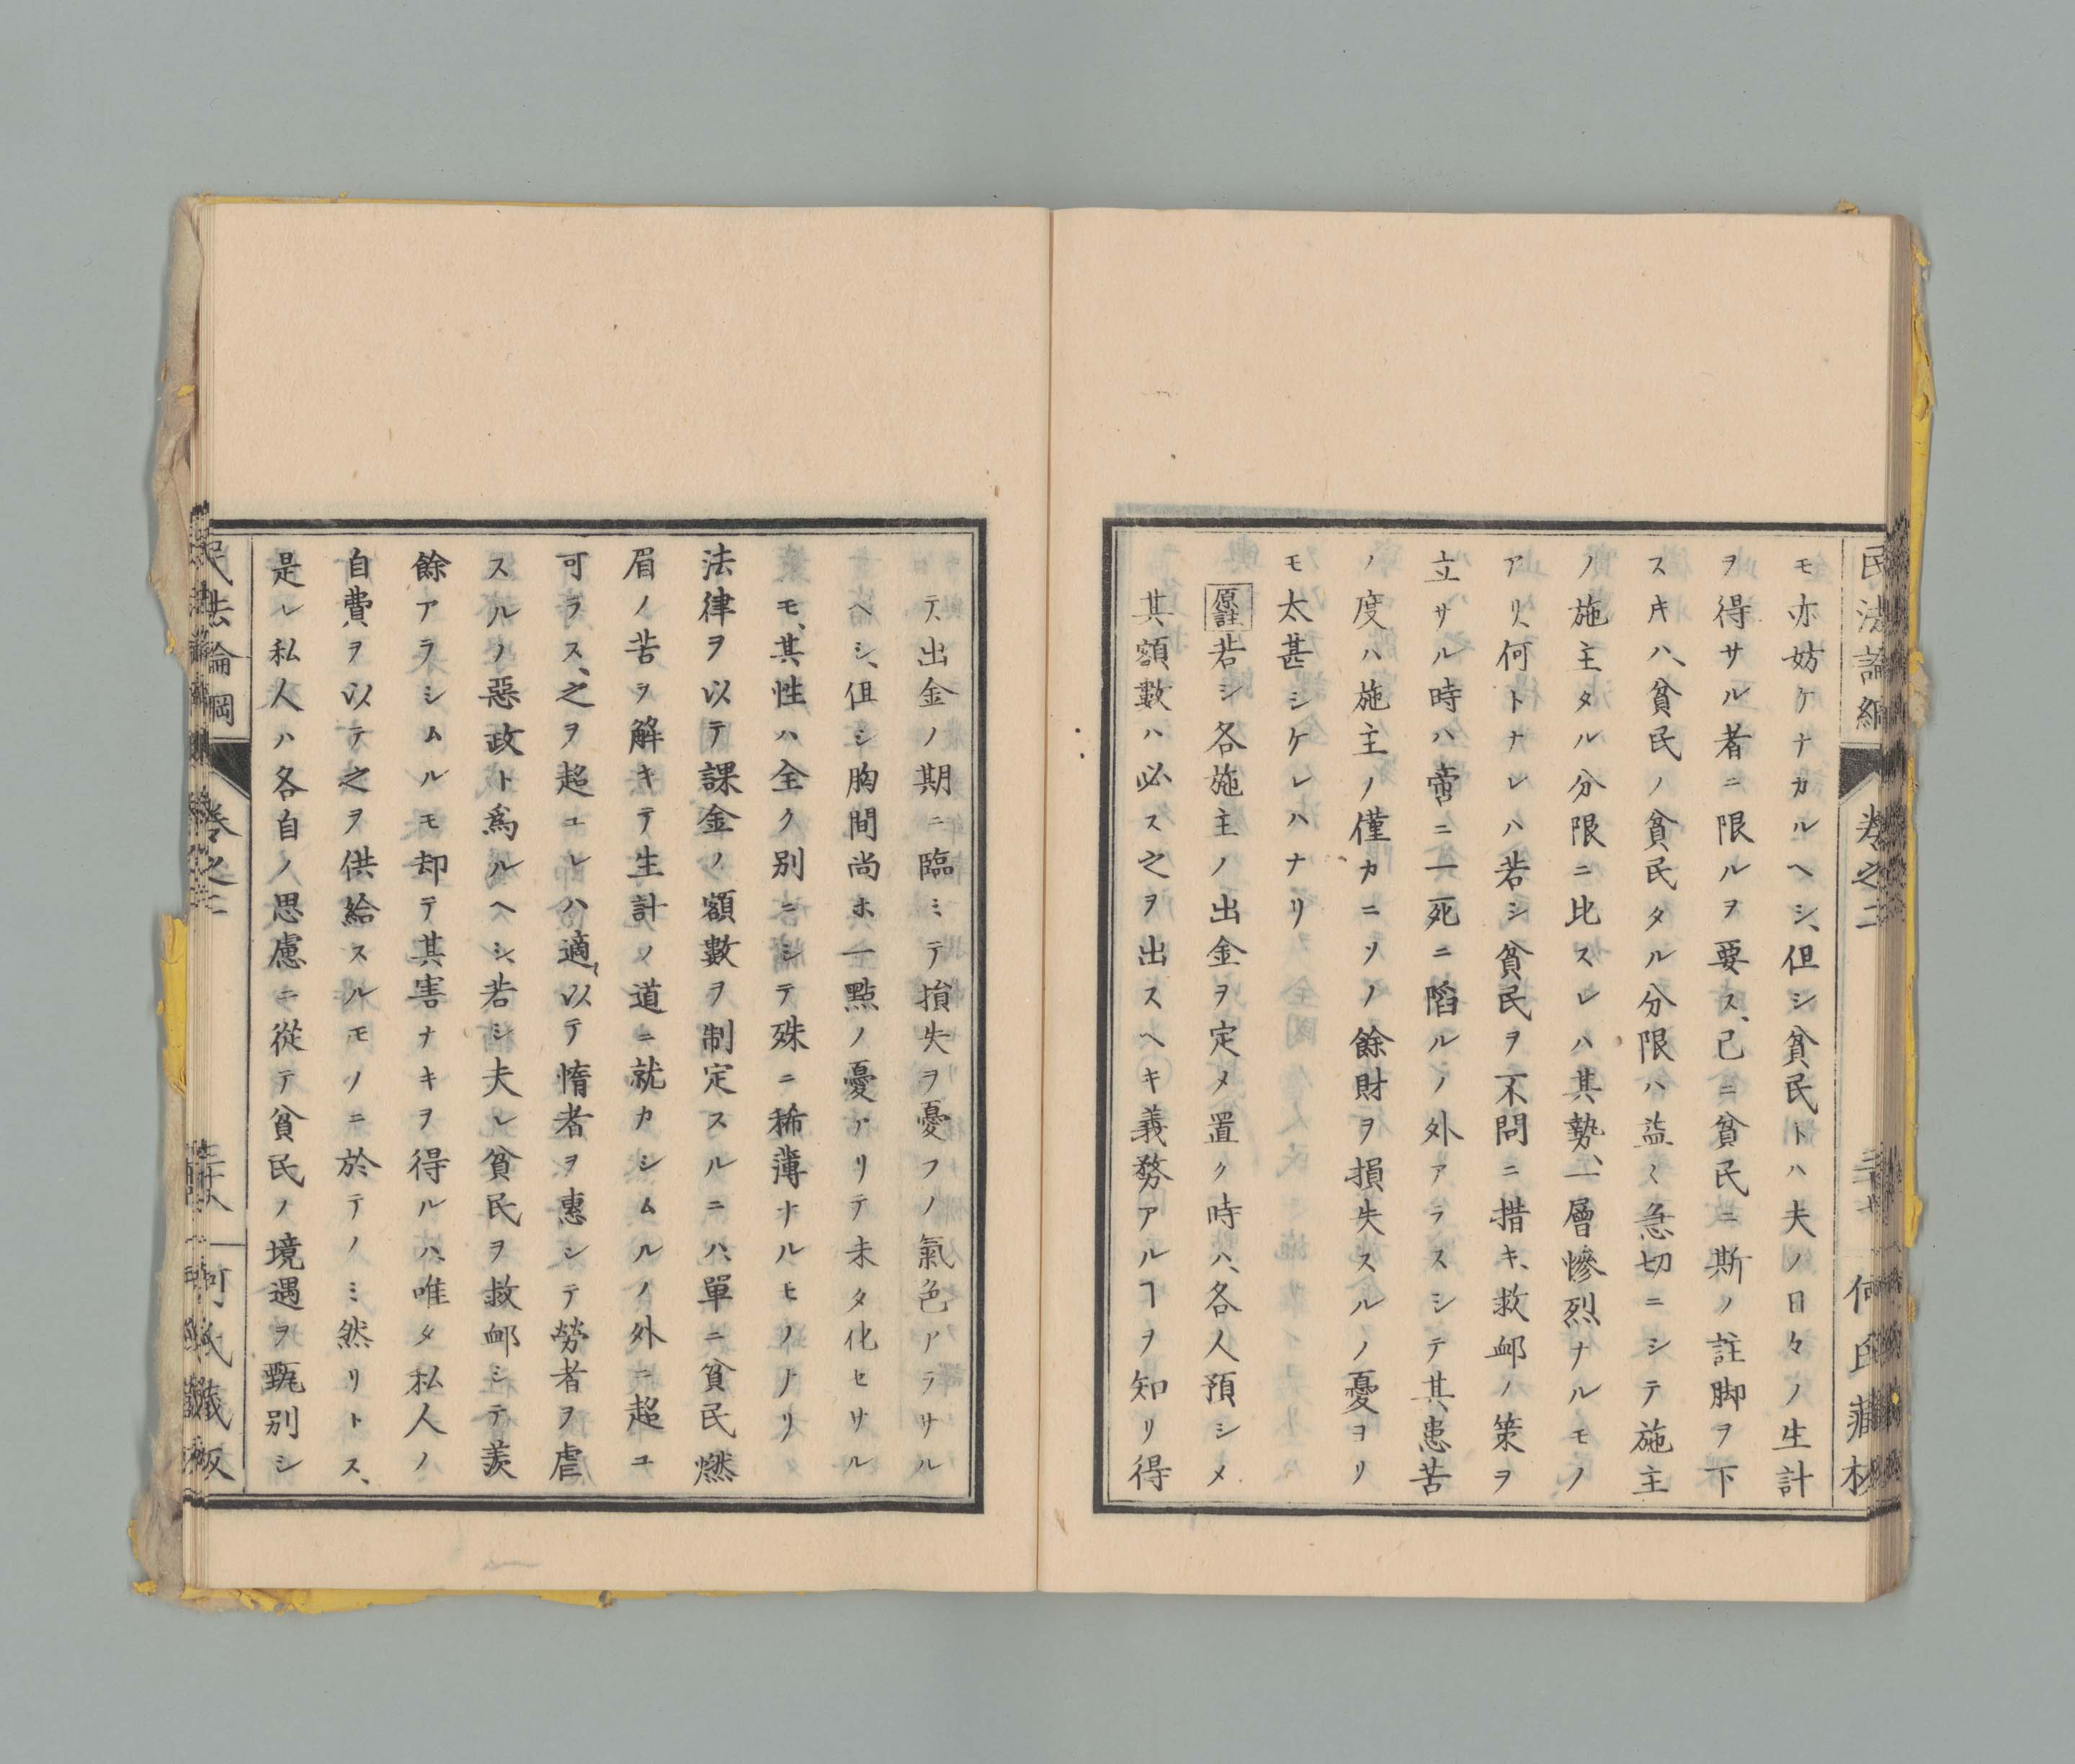 民法論綱
卷之二
何氏藏板
モ亦妨ケナカルヘシ、但シ貧民トハ夫ノ日々ノ生計
ヲ得サル者ニ限ルヲ要ス、已ニ貧民ニ斯ノ註脚ヲ下
スキハ、貧民ノ貧民タル分限ハ益〻急切ニシテ施主
ノ施主タル分限ニ比スレハ其勢、一層慘烈ナルモノ
アリ、何トナレハ若シ貧民ヲ不問ニ措キ、救邮ノ策ヲ
立サル時ハ啻ニ一死ニ陷ルノ外アラスシテ其患苦
ノ度ハ施主ノ僅カニソノ餘財ヲ損失スルノ憂ヨリ
モ太甚シケレハナリ
原註若シ各施主ノ出金ヲ定メ置ク時ハ、各人預シメ
其額數ハ必ス之ヲ出スヘキ義務アルヿヲ知リ得
テ、出金ノ期ニ臨ミテ損失ヲ憂フノ氣色アラサル
ヘシ、但シ胸間尚ホ一點ノ憂アリテ未タ化セサル
モ、其性ハ全ク別ニシテ殊ニ稀薄ナルモノナリ
法律ヲ以テ課金ノ額數ヲ制定スルニハ、單ニ貧民燃
眉ノ苦ヲ解キテ生計ノ道ニ就カシムルノ外ニ超ユ
可ラス、之ヲ超ユレハ適以テ惰者ヲ惠シテ勞者ヲ虐
スルノ惡政ト爲ルヘシ、若シ夫レ貧民ヲ救邮シテ羨
餘アラシムルモ却テ其害ナキヲ得ルハ、唯タ私人ノ
自費ヲ以テ之ヲ供給スルモノニ於テノミ然リトス、
是レ私人ハ各自ノ思慮ニ從テ貧民ノ境遇ヲ甄別シ
民法論綱
卷之二
何氏藏板